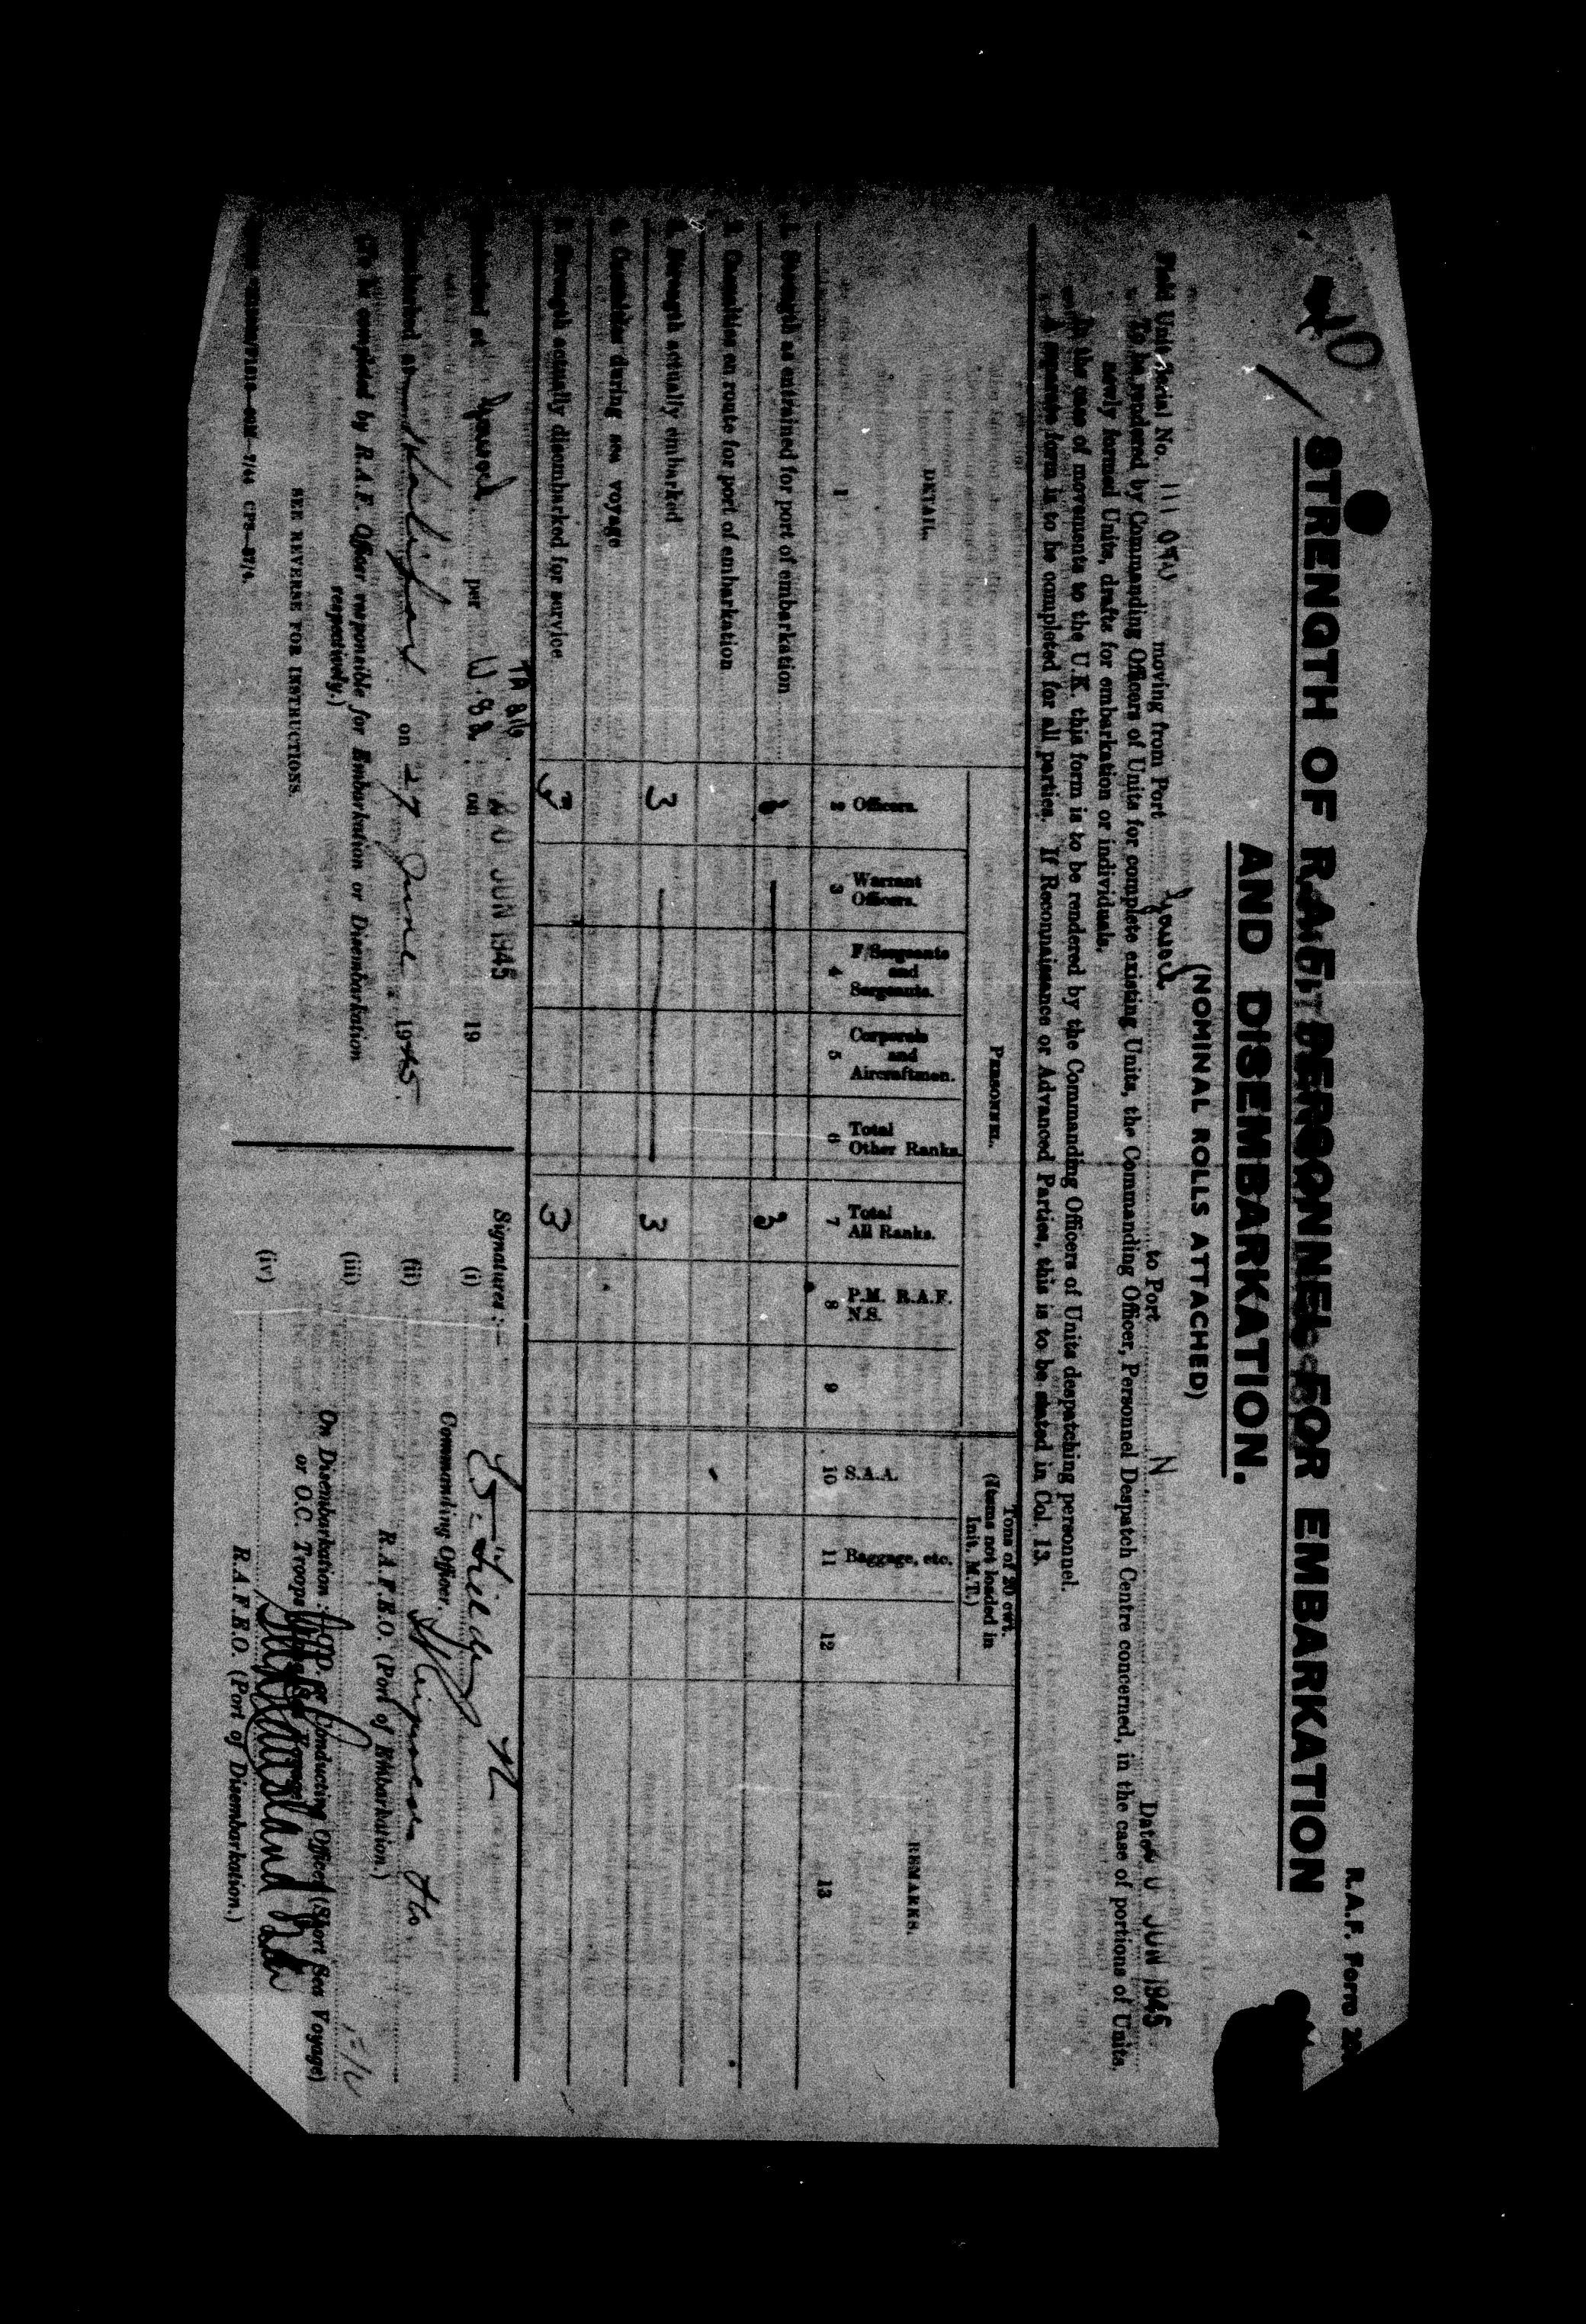 10
R.A.F. Form
STRENGTH OF R.A.F. PERSONNEL FOR EMBARKATION
AND DISEMBARKATION.
(NOMINAL ROLLS ATTACHED)
Field Unit Serial No. 111 OTU moving from Port Gourock to Port N Date 0 JUN 1945
To be rendered by Commanding Officers of Units for complete existing Units, the Commanding Officer, Personnel Despatch Centre concerned, in the case of portions of Units,
newly formed Units, drafts for embarkation or individuals.
In the case of movements to the U.K. this form is to be rendered by the Commanding Officers of Units despatching personnel.
A separate form is to be completed for all parties. If Reconnaissance or Advanced Parties, this is to be stated in Col. 13.
PERSONNEL.
Tons of 20 cwt.
(Items not loaded in
Init. M.T.)
DETAIL.
Officers.
Warrant
Officers.
F/Sergeants
and
Sergeants.
Corporals
and
Aircraftmen.
Total
Other Ranks.
Total
All Ranks.
P.M. R.A.F.
N.S.
S.A.A.
Baggage, etc.
REMARKS.
1 2 3 4 5 6 7 8 9 10 11 12 13
1. Strength as entrained for port of embarkation 3
2. Casualties on route for port of embarkation
3. Strength actually embarked 3 3
4. Casualties during sea voyage
5. Strength actually disembarked for service 3 3
TA 816
Embarked at Gourock per W.82. on 20 JUN 1945 19
Disembarked at Halifax on 27 June 1945.
(To be completed by R.A.F. Officer responsible for Embarkation or Disembarkation
respectively.)
SEE REVERSE FOR INSTRUCTIONS.
Signatures:—
(i)
Commanding Officer.
(ii)
R.A.F.E.O. (Port of Embarkation.)
(iii)
On Disembarkation: Conducting Officer (Short Sea Voyage)
or O.C. Troops
(iv)
R.A.F.E.O. (Port of Disembarkation.)